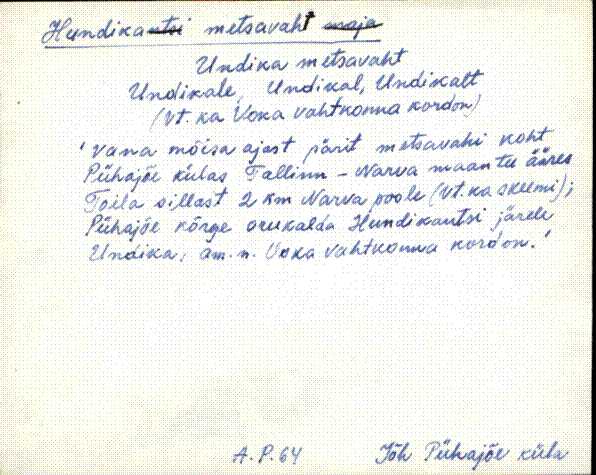 Hundikantsi metsavaht maja
Undika metsavaht
Undikale, Undikal, Undikalt
(vt. ka Voka vahtkonna kordon)
'Vana mõisa ajast pärit metsavahi koht
Pühajõe külas Tallinn - Narva maantee ääres
Toila sillast 2 km Narva poole (vt. ka skeemi);
Pühajõe kõrge orukalda Hundikantsi järele
Undika; am. n. Voka vahtkonna kordon.'
A. P. 64 Jõh Pühajõe küla